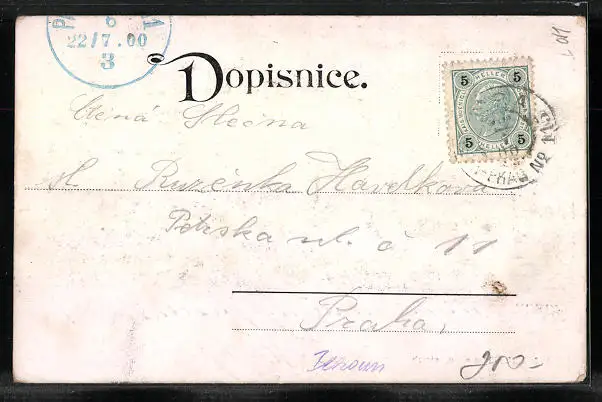 6
22/7.00
3
Dopisnice.
5 HELLER 5
5 HELLER 5
Ctěná Slečna
sl. Ruzénka Havelkova
Petrska ul. č 11
Praha,
Beroun